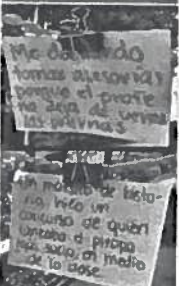 Me da miedo
tomar asesorías
porque el profe
no deja de verme
las piernas
mi maestro de histo-
ria hizo un
concurso de quién
el pitopo
más sucio, en medio
de la clase